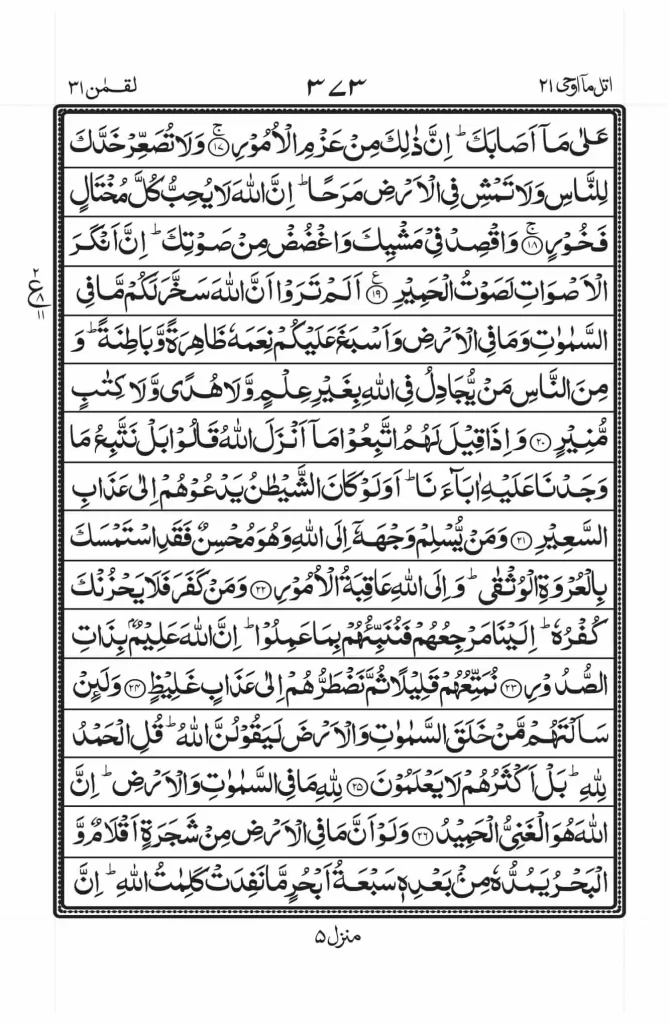 اتل مآ اوحی ۲۱
۳۷۳
لقمٰن ۳۱
عَلٰى مَاۤ اَصَابَكَ ؕ اِنَّ ذٰلِكَ مِنْ عَزْمِ الْاُمُوْرِ ۚ﴿۱۷﴾ وَلَا تُصَعِّرْ خَدَّكَ
لِلنَّاسِ وَلَا تَمْشِ فِى الْاَرْضِ مَرَحًا ؕ اِنَّ اللّٰهَ لَا يُحِبُّ كُلَّ مُخْتَالٍ
فَخُوْرٍ ۚ﴿۱۸﴾ وَاقْصِدْ فِىْ مَشْيِكَ وَاغْضُضْ مِنْ صَوْتِكَ ؕ اِنَّ اَنْكَرَ
الْاَصْوَاتِ لَصَوْتُ الْحَمِيْرِ ﴿۱۹﴾ ع اَلَمْ تَرَوْا اَنَّ اللّٰهَ سَخَّرَ لَكُمْ مَّا فِى
۲ ع ۸ ۱۱
السَّمٰوٰتِ وَمَا فِى الْاَرْضِ وَاَسْبَغَ عَلَيْكُمْ نِعَمَهٗ ظَاهِرَةً وَّبَاطِنَةً ؕ وَ
مِنَ النَّاسِ مَنْ يُّجَادِلُ فِى اللّٰهِ بِغَيْرِ عِلْمٍ وَّلَا هُدًى وَّلَا كِتٰبٍ
مُّنِيْرٍ ﴿۲۰﴾ وَاِذَا قِيْلَ لَهُمُ اتَّبِعُوْا مَاۤ اَنْزَلَ اللّٰهُ قَالُوْا بَلْ نَتَّبِعُ مَا
وَجَدْنَا عَلَيْهِ اٰبَآءَنَا ؕ اَوَلَوْ كَانَ الشَّيْطٰنُ يَدْعُوْهُمْ اِلٰى عَذَابِ
السَّعِيْرِ ﴿۲۱﴾ وَمَنْ يُّسْلِمْ وَجْهَهٗۤ اِلَى اللّٰهِ وَهُوَ مُحْسِنٌ فَقَدِ اسْتَمْسَكَ
بِالْعُرْوَةِ الْوُثْقٰى ؕ وَاِلَى اللّٰهِ عَاقِبَةُ الْاُمُوْرِ ﴿۲۲﴾ وَمَنْ كَفَرَ فَلَا يَحْزُنْكَ
كُفْرُهٗ ؕ اِلَيْنَا مَرْجِعُهُمْ فَنُنَبِّئُهُمْ بِمَا عَمِلُوْا ؕ اِنَّ اللّٰهَ عَلِيْمٌۢ بِذَاتِ
الصُّدُوْرِ ﴿۲۳﴾ نُمَتِّعُهُمْ قَلِيْلًا ثُمَّ نَضْطَرُّهُمْ اِلٰى عَذَابٍ غَلِيْظٍ ﴿۲۴﴾ وَلَئِنْ
سَاَلْتَهُمْ مَّنْ خَلَقَ السَّمٰوٰتِ وَالْاَرْضَ لَيَقُوْلُنَّ اللّٰهُ ؕ قُلِ الْحَمْدُ
لِلّٰهِ ؕ بَلْ اَكْثَرُهُمْ لَا يَعْلَمُوْنَ ﴿۲۵﴾ لِلّٰهِ مَا فِى السَّمٰوٰتِ وَالْاَرْضِ ؕ اِنَّ
اللّٰهَ هُوَ الْغَنِىُّ الْحَمِيْدُ ﴿۲۶﴾ وَلَوْ اَنَّ مَا فِى الْاَرْضِ مِنْ شَجَرَةٍ اَقْلَامٌ وَّ
الْبَحْرُ يَمُدُّهٗ مِنْۢ بَعْدِهٖ سَبْعَةُ اَبْحُرٍ مَّا نَفِدَتْ كَلِمٰتُ اللّٰهِ ؕ اِنَّ
منزل ۵